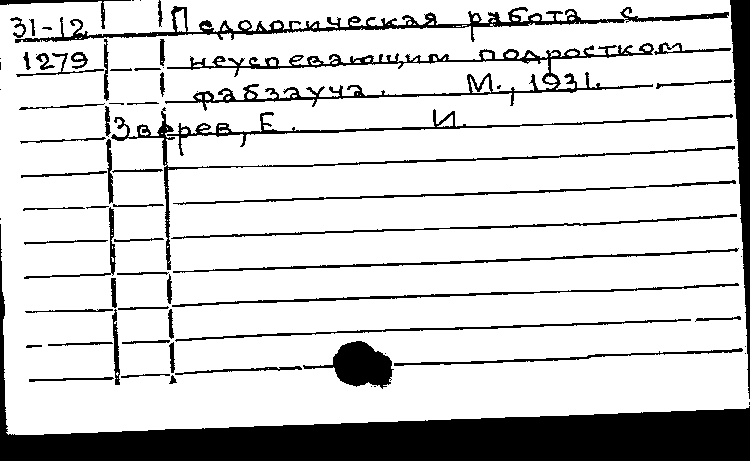 31-12 Педологическая работа с
1279 неуспевающим подростком
фабзауча. М., 1931.
Зверев, Е. И.